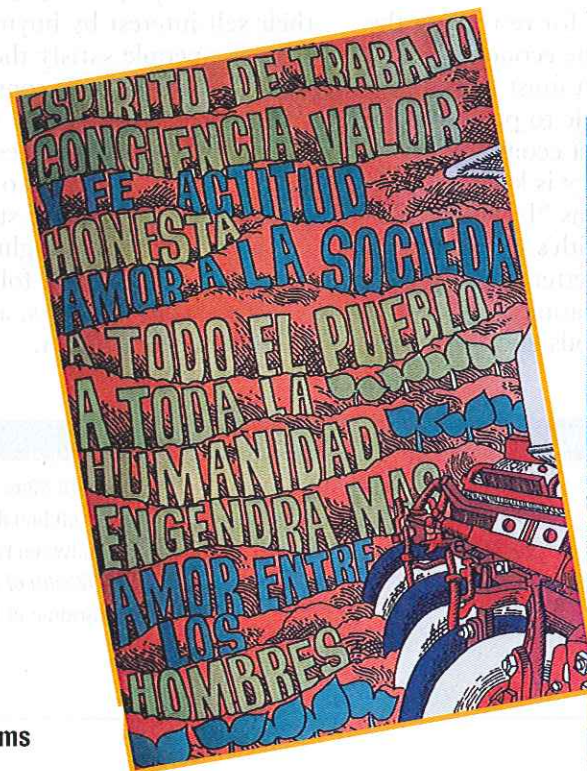 ESPIRITU DE TRABAJO
CONCIENCIA VALOR
Y FE ACTITUD
HONESTA
AMOR A LA SOCIEDA
A TODO EL PUEBLO
A TODA LA
HUMANIDAD
ENGENDRA MAS
AMOR ENTRE
LOS
HOMBRES
ms